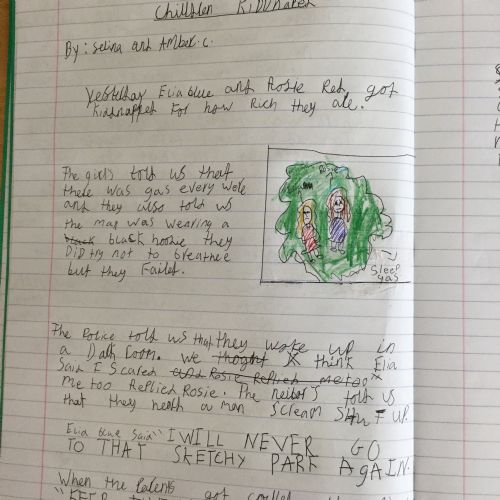 Children Kiddnaped
By: Selina and Amber.c.
Yesterday Elia blue and Rosie Red got
Kidnapped For how Rich they are.
The girls told us that
there was gas every were
and they also told us
the man was wearing a
black black hoodie they
Did try not to breathee
but they Failed.
Rosie
Sleep
gas
The Police told us that they woke up in
a Dark Room. We thoght X think Elia
Said I Scared and Rosie Replied me too X
me too Replied Rosie. The told us
that they heard a man Scream SHUT UP.
Elia blue Said "I WILL NEVER GO
TO THAT SKETCHY PARK AgAIN.
When the Parents
got